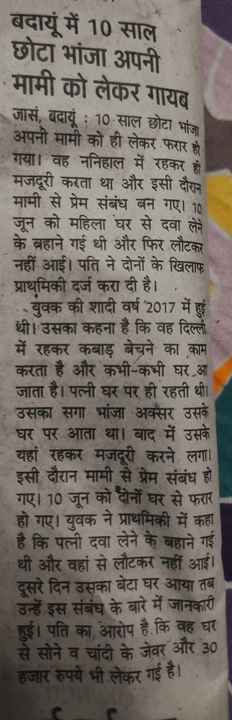 बदायूं में 10 साल
छोटा भांजा अपनी
मामी को लेकर गायब
जासं, बदायूं : 10 साल छोटा भांजा
अपनी मामी को ही लेकर फरार हो
गया। वह ननिहाल में रहकर ही
मजदूरी करता था और इसी दौरान
मामी से प्रेम संबंध बन गए। 10
जून को महिला घर से दवा लेने
के बहाने गई थी और फिर लौटकर
नहीं आई। पति ने दोनों के खिलाफ
प्राथमिकी दर्ज करा दी है।
युवक की शादी वर्ष 2017 में हुई
थी। उसका कहना है कि वह दिल्ली
में रहकर कबाड़ बेचने का काम
करता है और कभी-कभी घर आ
जाता है। पत्नी घर पर ही रहती थी।
उसका सगा भांजा अक्सर उसके
घर पर आता था। बाद में उसके
यहां रहकर मजदूरी करने लगा।
इसी दौरान मामी से प्रेम संबंध हो
गए। 10 जून को दोनों घर से फरार
हो गए। युवक ने प्राथमिकी में कहा
है कि पत्नी दवा लेने के बहाने गई
थी और वहां से लौटकर नहीं आई।
दूसरे दिन उसका बेटा घर आया तब
उन्हें इस संबंध के बारे में जानकारी
हुई। पति का आरोप है कि वह घर
से सोने व चांदी के जेवर और 30
हजार रुपये भी लेकर गई है।